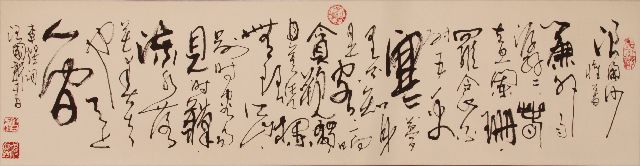 浪淘沙
簾外雨
潺〻春
意闌珊
羅衾不
耐五更
寒夢
里不知身
是客一晌
貪歡獨
自莫憑欄
無限江山
別時容易
見時難
流水落
花春去
也天上
人間
李煜詞